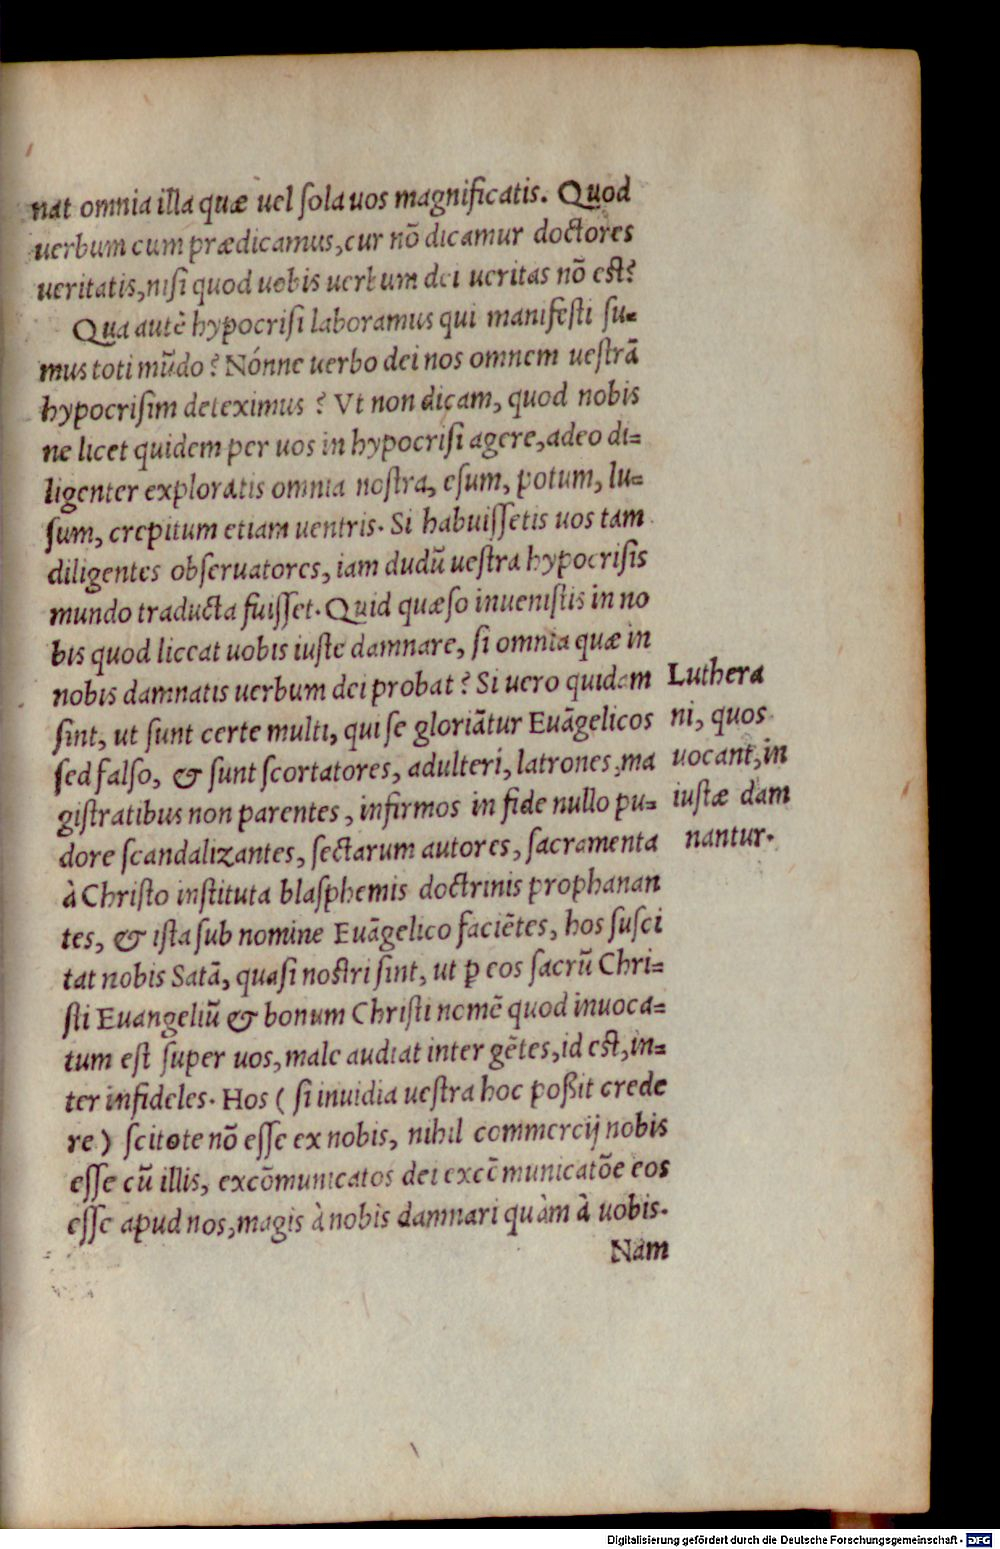 nat omnia illa quæ uel ſola uos magnificatis. Quod
uerbum cum prædicamus, cur nõ dicamur doctores
ueritatis, niſi quod uobis uerbum dei ueritas nõ est?
Qua autẽ hypocriſi laboramus qui manifeſti ſu=
mus toti mũdo? Nónne uerbo dei nos omnem ueſtrã
hypocriſim deteximus? Vt non dicam, quod nobis
ne licet quidem per uos in hypocriſi agere, adeo di=
ligenter exploratis omnia noſtra, eſum, potum, lu=
ſum, crepitum etiam uentris. Si habuiſſetis uos tam
diligentes obſeruatores, iam dudũ ueſtra hypocriſis
mundo traducta fuiſſet. Quid quæſo inueniſtis in no
bis quod liceat uobis iuſte damnare, ſi omnia quæ in
nobis damnatis uerbum dei probat? Si uero quidam
ſint, ut ſunt certe multi, qui ſe gloriãtur Euãgelicos
ſed falſo, & ſunt ſcortatores, adulteri, latrones, ma
giſtratibus non parentes, infirmos in fide nullo pu=
dore ſcandalizantes, ſectarum autores, ſacramenta
à Chriſto inſtituta blaſphemis doctrinis prophanan
tes, & iſta ſub nomine Euãgelico faciẽtes, hos ſuſci
tat nobis Satã, quaſi noſtri ſint, ut ꝑ eos ſacrũ Chri=
ſti Euangeliũ & bonum Chriſti nomẽ quod inuoca=
tum eſt ſuper uos, male audiat inter gẽtes, id eſt, in=
ter infideles. Hos (ſi inuidia ueſtra hoc poßit crede
re) ſcitote nõ eſſe ex nobis, nihil commercij nobis
eſſe cũ illis, excõmunicatos dei excõmunicatõe eos
eſſe apud nos, magis à nobis damnari quàm à uobis.
Nam
Luthera
ni, quos
uocant, in
iuſtæ dam
nantur.
Digitalisierung gefördert durch die Deutsche Forschungsgemeinschaft - DFG